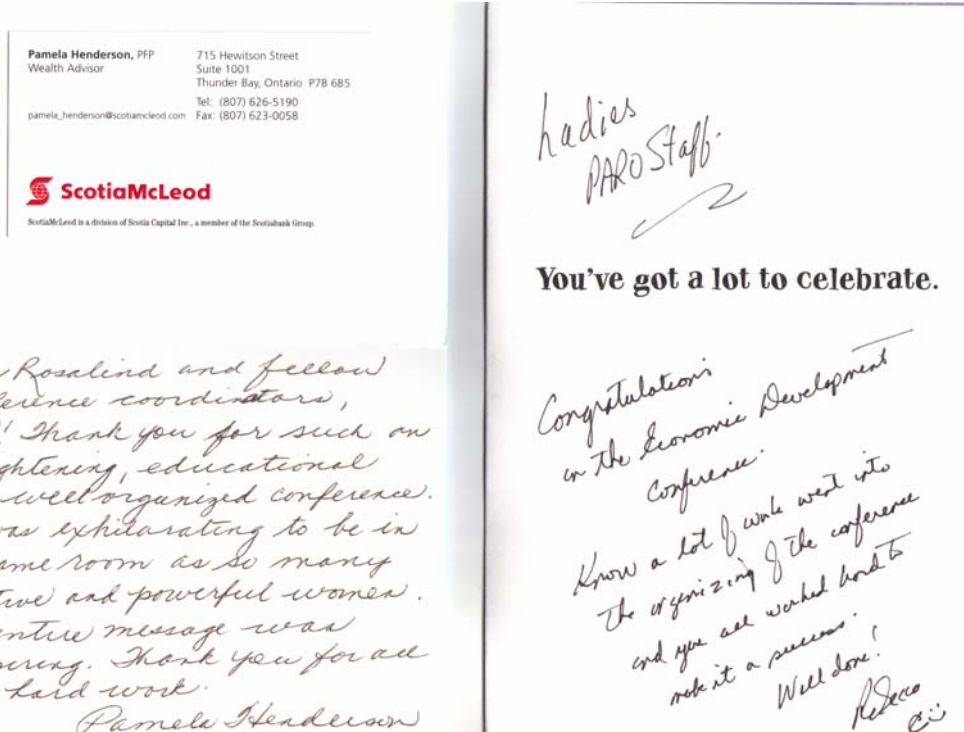 Pamela Henderson, PFP
Wealth Advisor
pamela_henderson@scotiamcleod.com
715 Hewitson Street
Suite 1001
Thunder Bay, Ontario P7B 6B5
Tel: (807) 626-5190
Fax: (807) 623-0058
ScotiaMcLeod
ScotiaMcLeod is a division of Scotia Capital Inc., a member of the Scotiabank Group.
Rosalind and fellow
ference coordinators,
! Thank you for such an
ghtening, educational
well organized conference.
as exhilarating to be in
ame room as so many
tive and powerful women.
ntire message was
iring. Thank you for all
hard work.
Pamela Henderson
Ladies
PARO Staff.
You've got a lot to celebrate.
Congratulations
on the Economic Development
Conference.
Know a lot of work went into
the organizing of the conference
and you all worked hard to
make it a success.
Well done!